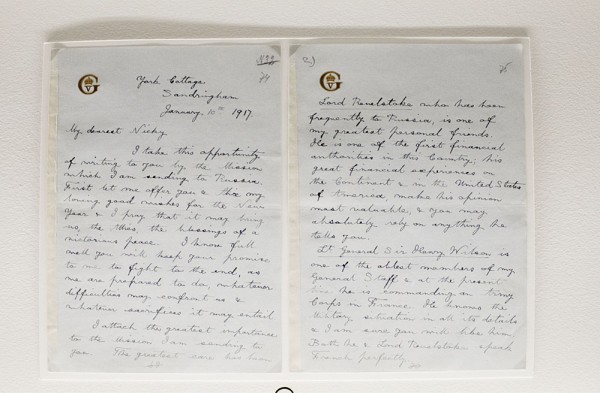 York Cottage
Sandringham
January, 10th 1917.
My dearest Nicky
I take this opportunity
of writing to you by the Mission
which I am sending to Russia.
First let me offer you & Alix my
loving good wishes for the New
Year & I pray that it may bring
us, the blessings of a
victorious peace. I know full
well you will keep your promise
to me to fight to the end, as
we are prepared to do, whatever
difficulties may confront us &
whatever sacrifices it may entail
I attach the greatest importance
to the Mission I am sending to
you. The greatest care has been
Lord Revelstoke who has been
frequently to Russia, is one of
my greatest personal friends.
He is one of the first financial
authorities in this Country; his
great financial experiences on
the Continent & in the United States
of America make his opinion
most valuable, & you may
absolutely rely on anything he
tells you.
Lt General Sir Henry Wilson is
one of the ablest members of my
General Staff & at the present
time he is commanding an Army
Corps in France. He knows the
Military situation in all its details
& I am sure you will like him.
Both he & Lord Revelstoke speak
French perfectly